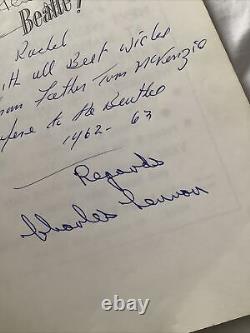 Beatle!
Rachel
with all Best wishes
from Father Tom McKenzie
to the Beatles
1962-63
Regards
Charles Lennon